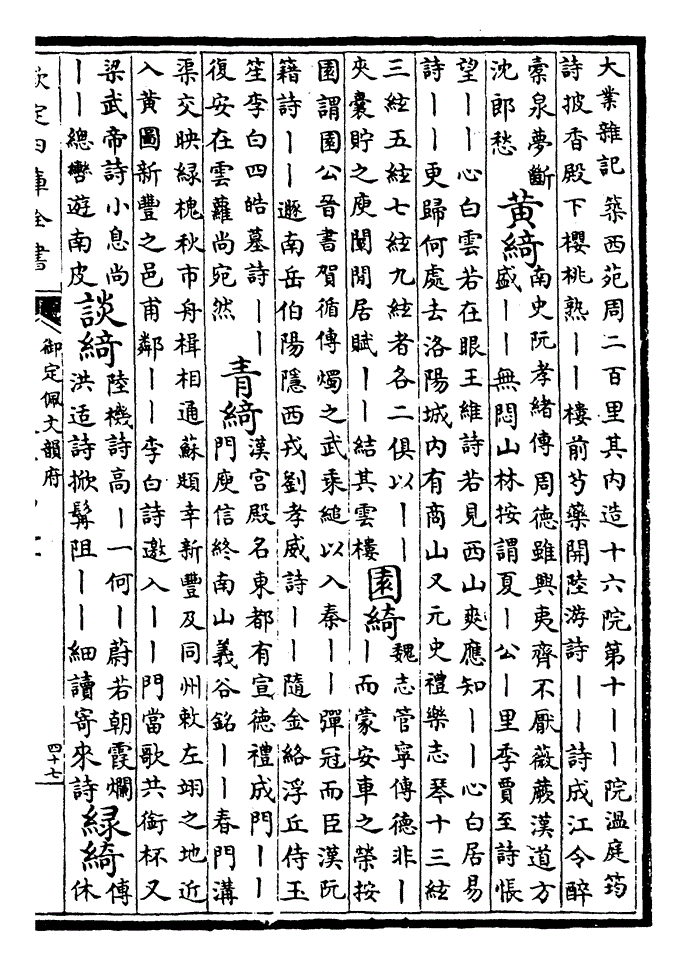 大業雜記 築西苑周二百里其内造十六院第十｜｜院溫庭筠
詩披香殿下櫻桃熟｜｜樓前芍藥開陸游詩｜｜詩成江令醉
索泉夢斷
沈郎愁
黃綺
南史阮孝緒傳周德雖興夷齊不厭薇蕨漢道方
盛｜｜無悶山林按謂夏｜公｜里季賈至詩悵
望｜｜心白雲若在眼王維詩若見西山爽應知｜｜心白居易
詩｜｜更歸何處去洛陽城内有商山又元史禮樂志琴十三絃
三絃五絃七絃九絃者各二俱以｜｜
夾囊貯之庾闡閒居賦｜｜結其雲樓
園綺
魏志管寧傳德非｜
｜而蒙安車之榮按
園謂園公晉書賀循傳燭之武乘縋以入秦｜｜彈冠而臣漢阮
籍詩｜｜遯南岳伯陽隱西戎劉孝威詩｜｜隨金絡浮丘侍玉
笙李白四皓墓詩｜｜
復安在雲蘿尚宛然
青綺
漢宮殿名東都有宣德禮成門｜｜
門庾信終南山義谷銘｜｜春門溝
渠交映緑槐秋市舟楫相通蘇頲幸新豐及同州敕左翊之地近
入黄圖新豐之邑甫鄰｜｜李白詩邀入｜｜門當歌共銜杯又
梁武帝詩小息尚
｜｜總轡遊南皮
談綺
陸機詩高｜一何｜蔚若朝霞爛
洪适詩掀髯阻｜｜細讀寄來詩
緑綺
傅
休
欽定四庫全書
御定佩文韻府
四十七